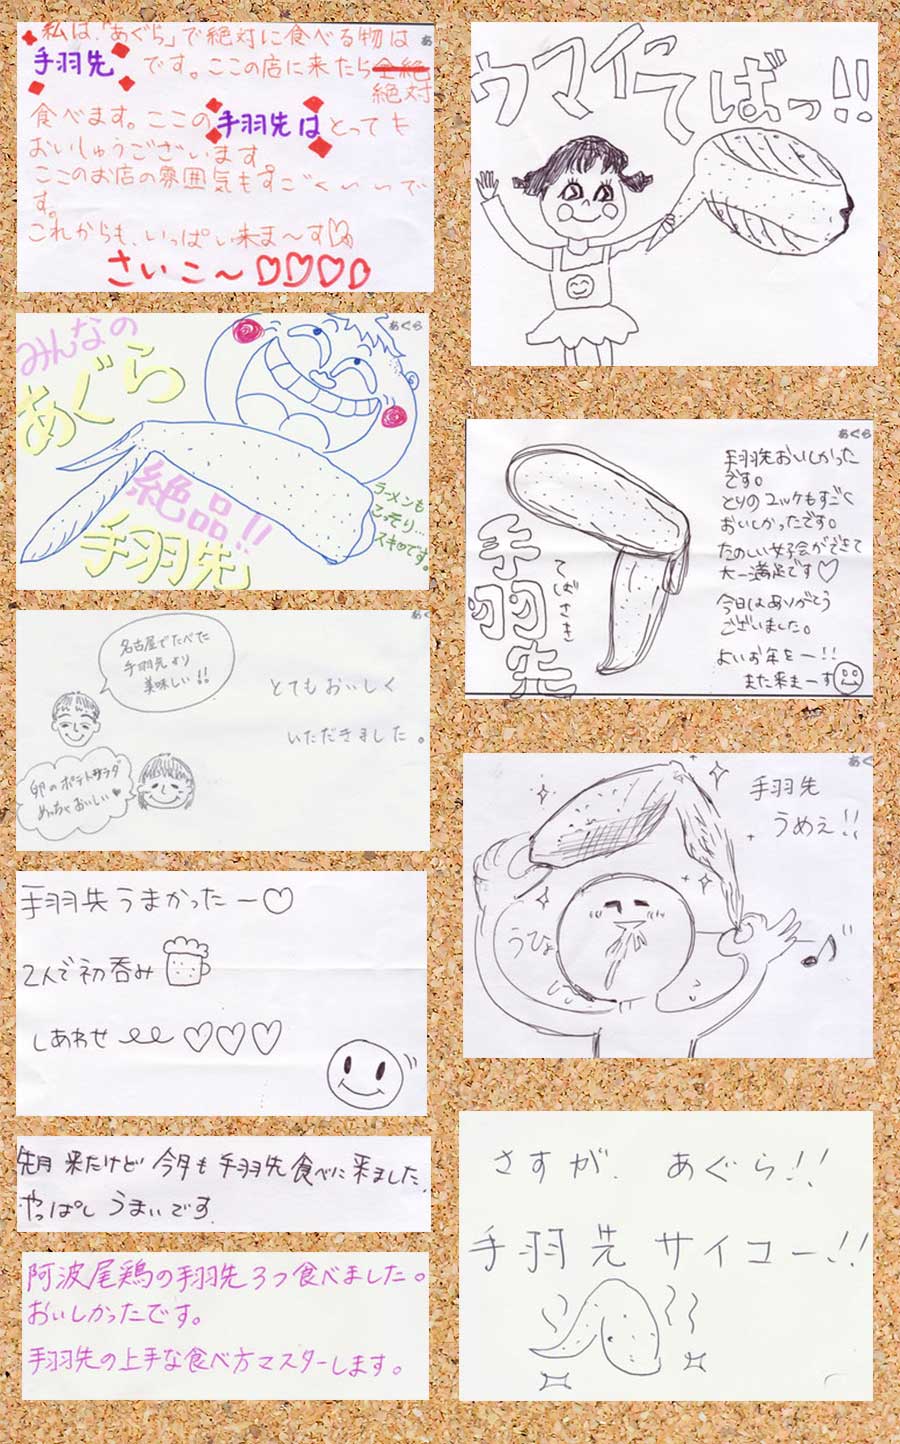 私は、「あぐら」で絶対に食べる物は
手羽先 です。ここの店に来たら
絶対
食べます。ここの手羽先はとっても
おいしゅうございます。
ここのお店の雰囲気もすごくいいで
す。
これからも、いっぱい来ま〜す
さいこ〜
あ
みんなの
あぐら
絶品!!
手羽先
ラーメンも
こっそり…
スキです。
あぐら
名古屋でたべた
手羽先より
美味しい!!
卵のポテトサラダ
めっちゃおいしい♥
とてもおいしく
いただきました。
あぐ
手羽先うまかったー♡
2人で初呑み
しあわせ ♡♡♡
先月 来たけど 今月も 手羽先 食べに 来ました。
やっぱし うまいです。
阿波尾鶏の手羽先3つ食べました。
おいしかったです。
手羽先の上手な食べ方マスターします。
ウマイってばっ!!
手羽先
てばさき
手羽先おいしかった
です。
とりのユッケもすごく
おいしかったです。
たのしい女子会ができて
大一満足です♡
今日はありがとう
ございました。
よいお年をー!!
また来まーす
あぐら
手羽先
うめぇ!!
うひょ
あぐ
さすが、あぐら!!
手羽先サイコー!!